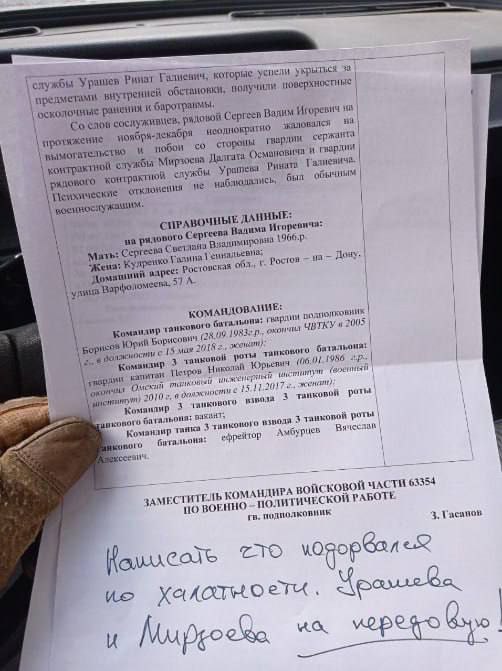 службы Урашев Ринат Галиевич, которые успели укрыться за
предметами внутренней обстановки, получили поверхностные
осколочные ранения и баротравмы.
Со слов сослуживцев, рядовой Сергеев Вадим Игоревич на
протяжение ноября-декабря неоднократно жаловался на
вымогательство и побои со стороны гвардии сержанта
контрактной службы Мирзоева Далгата Османовича и гвардии
рядового контрактной службы Урашева Рината Галиевича.
Психические отклонения не наблюдались, был обычным
военнослужащим.
СПРАВОЧНЫЕ ДАННЫЕ:
на рядового Сергеева Вадима Игоревича:
Мать: Сергеева Светлана Владимировна 1966.р.
Жена: Кудренко Галина Геннальевна;
Домашний адрес: Ростовская обл., г. Ростов – на – Дону,
улица Варфоломеева, 57 А.
КОМАНДОВАНИЕ:
Командир танкового батальона: гвардии подполковник
Борисов Юрий Борисович (28.09.1983г.р., окончил ЧВТКУ в 2005
г., в должности с 15 мая 2018 г., женат);
Командир 3 танковой роты танкового батальона:
гвардии капитан Петров Николай Юрьевич (06.01.1986 г.р.,
окончил Омский танковый инженерный институт (военный
институт) 2010 г, в должности с 15.11.2017 г., женат);
Командир 3 танкового взвода 3 танковой роты
танкового батальона: вакант;
Командир танка 3 танкового взвода 3 танковой роты
танкового батальона: ефрейтор Амбурцев Вячеслав
Алексеевич.
ЗАМЕСТИТЕЛЬ КОМАНДИРА ВОЙСКОВОЙ ЧАСТИ 63354
ПО ВОЕННО – ПОЛИТИЧЕСКОЙ РАБОТЕ
гв. подполковник
З. Гасанов
Написать что подорвался
по халатности. Урашева
и Мирзоева на передовую!